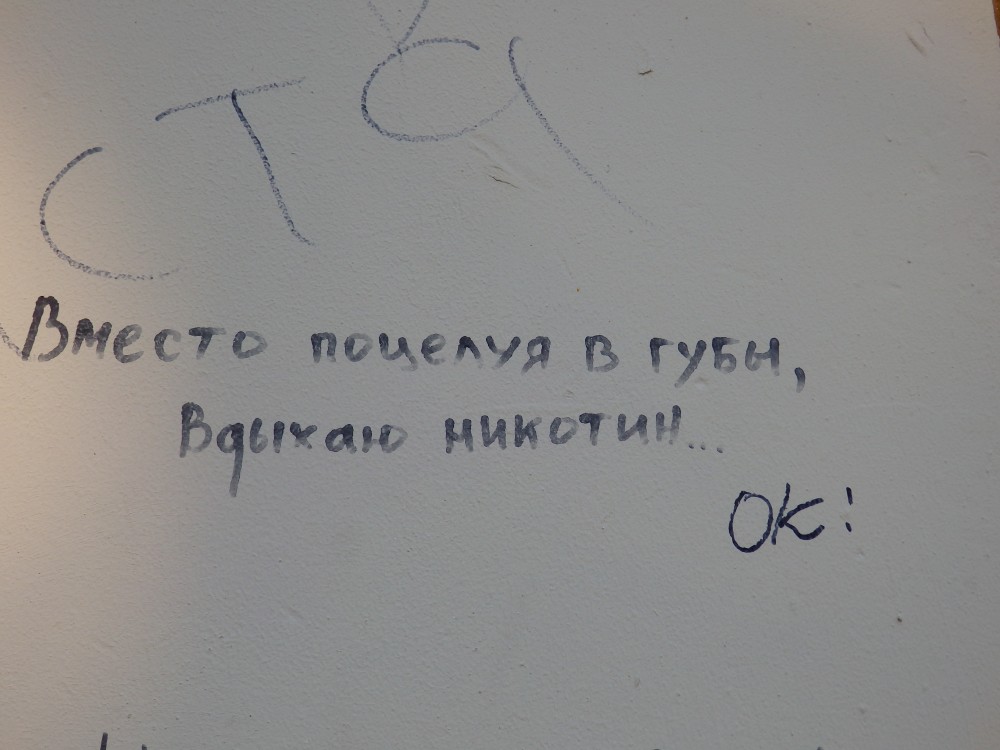 Вместо поцелуя в губы,
Вдыхаю никотин...
ОК!